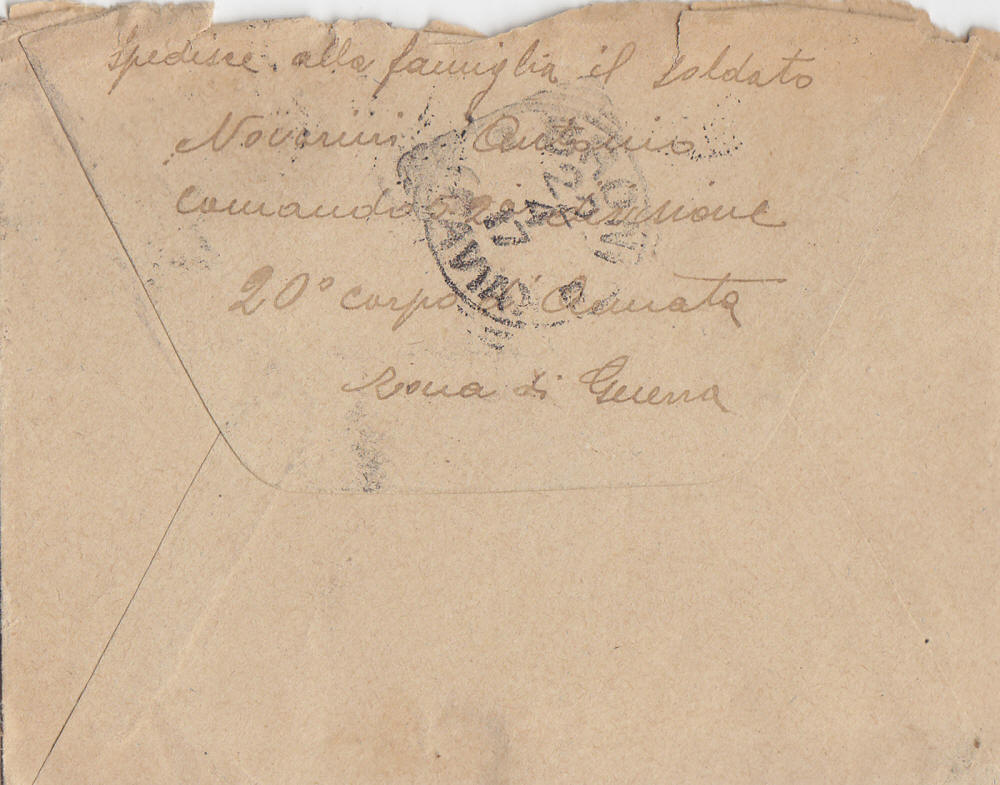 spedisce alla famiglia il soldato
Novarini Antonio
Comando divisione
20° corpo di Armata
Zona di Guerra